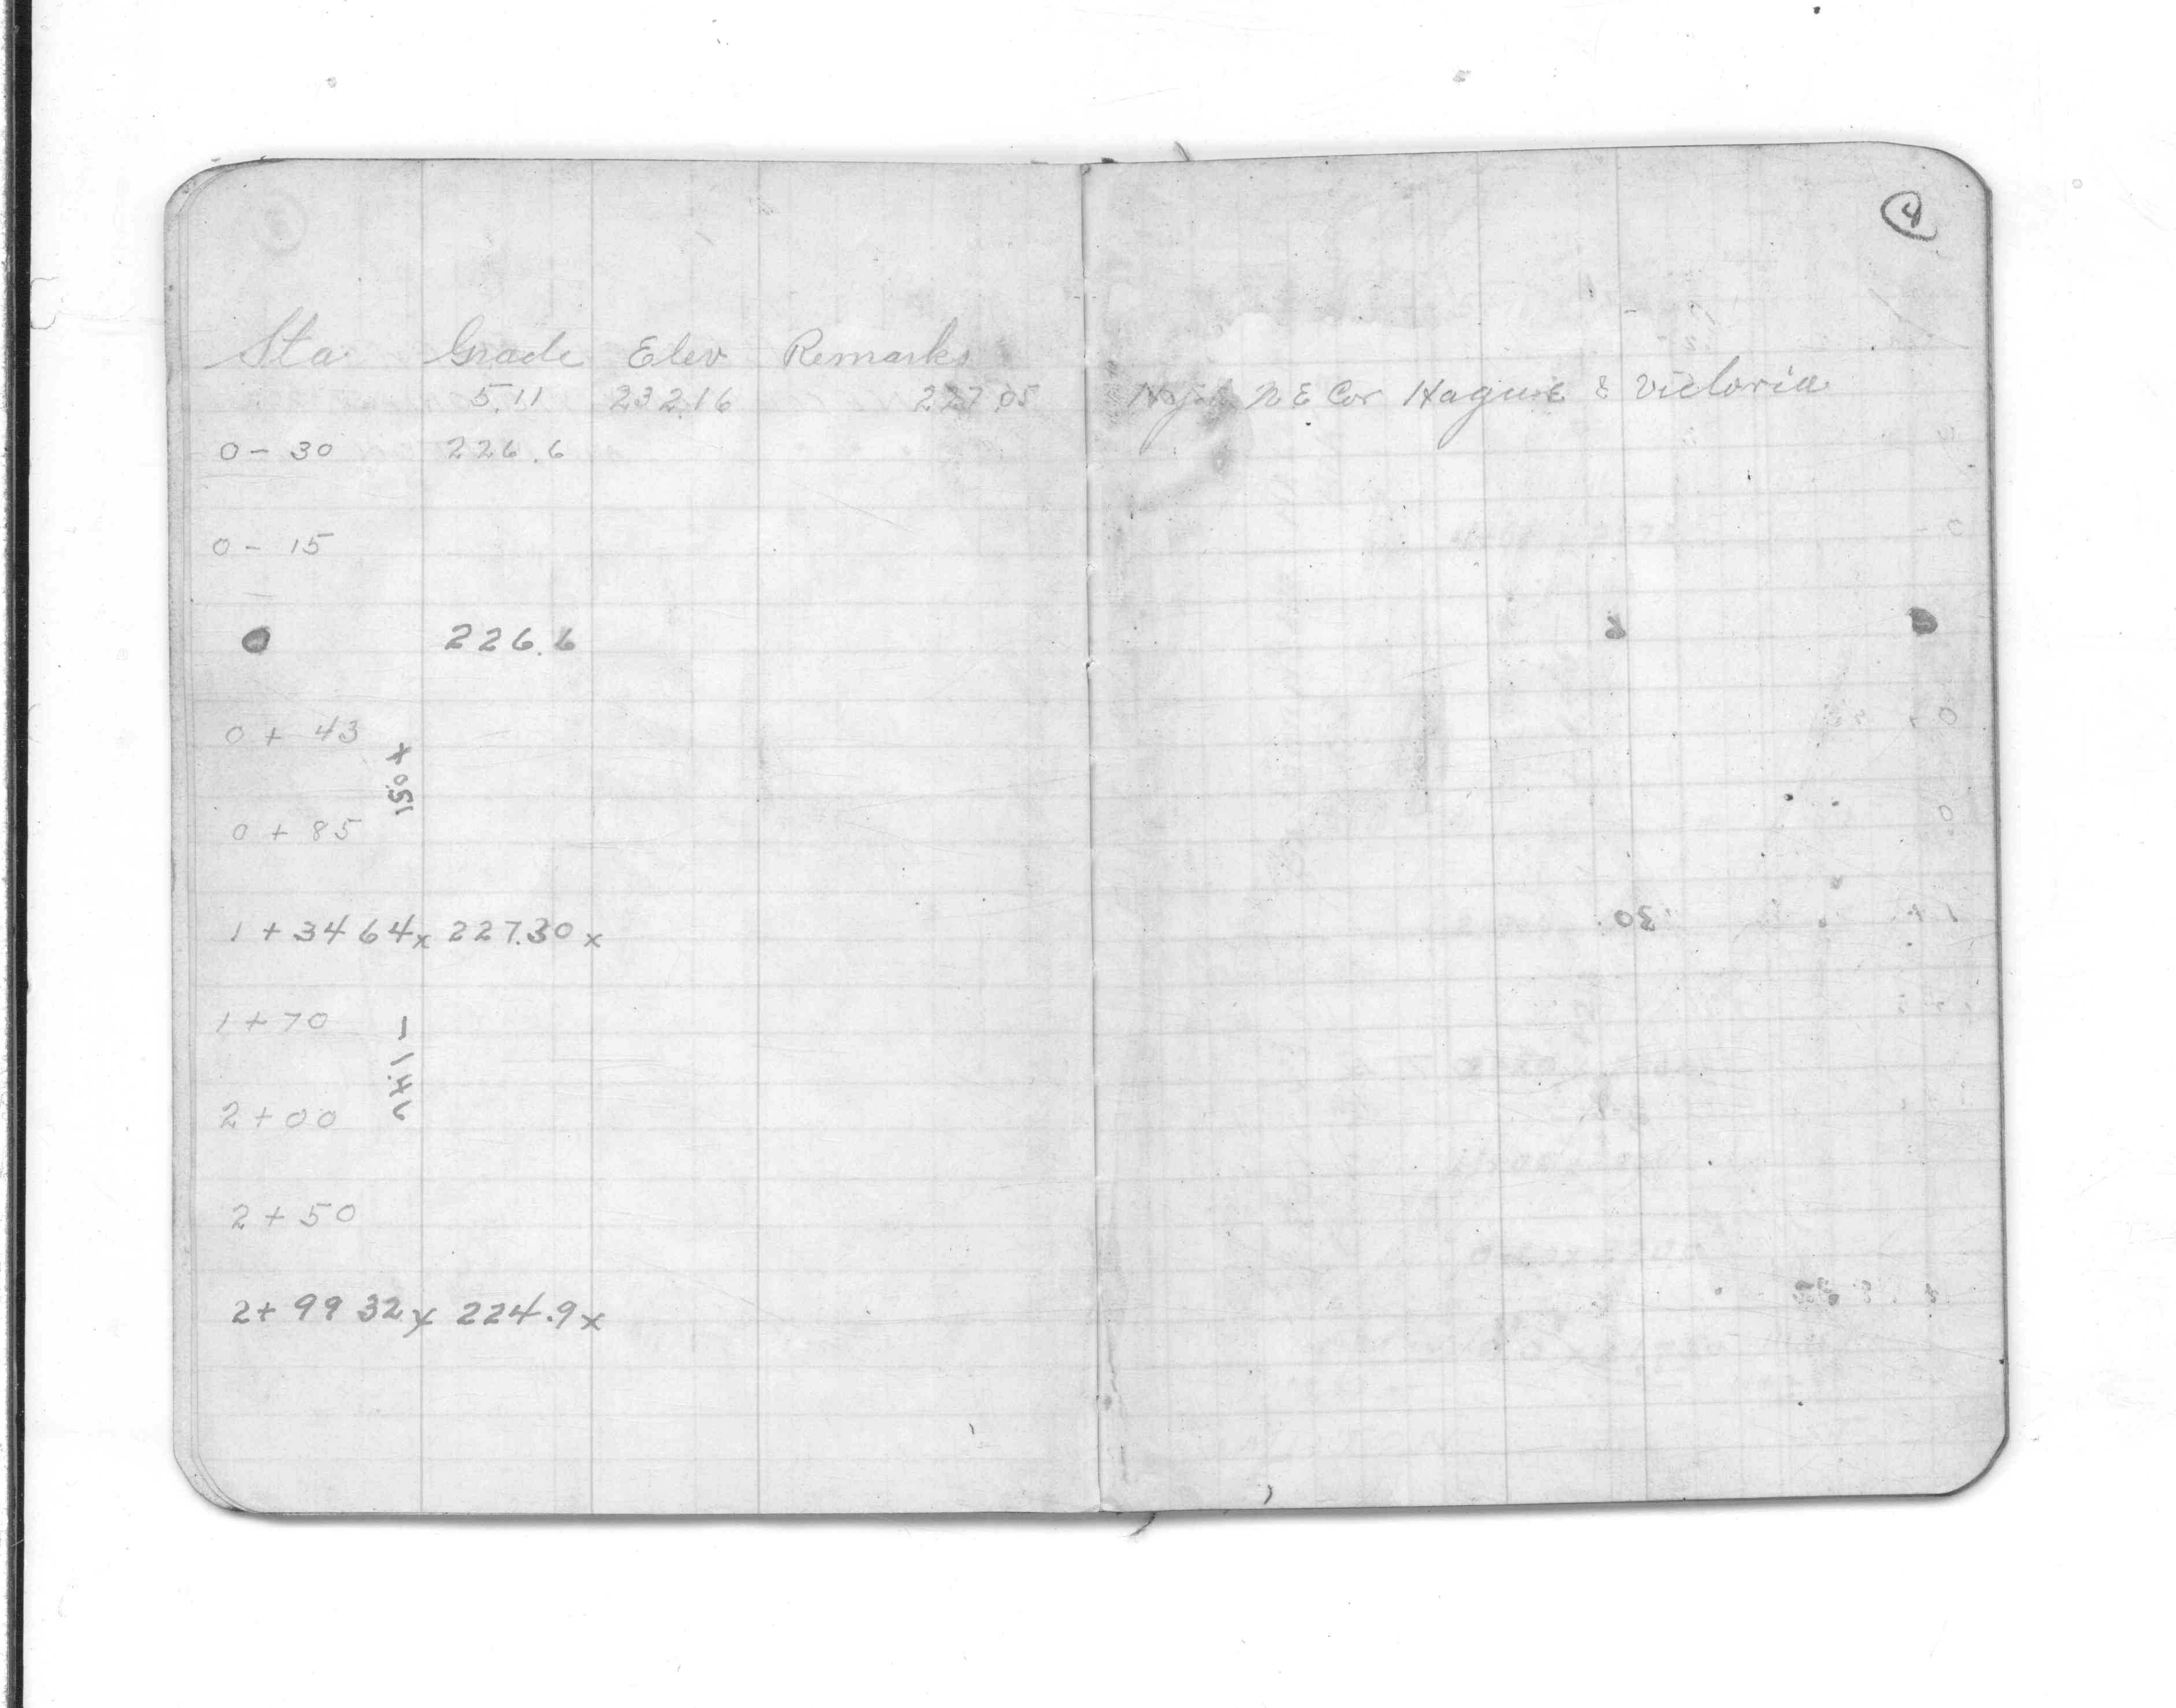 4
Sta Grade Elev Remarks
5.11 232.16 227.05 N E Cor Hague & Victoria
0 - 30 226.6
0 - 15
0 226.6
0 + 43
150 x
0 + 85
1 + 34 64x 227.30 x
1 + 70
2 + 00
2 + 50
2 + 99 32x 224.9x